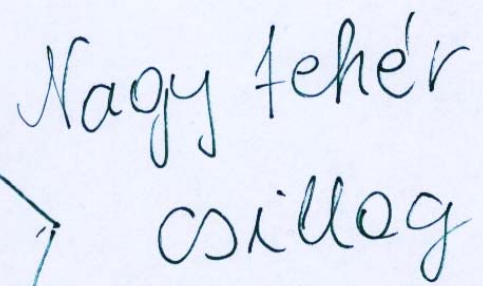 Nagy fehér
csillag